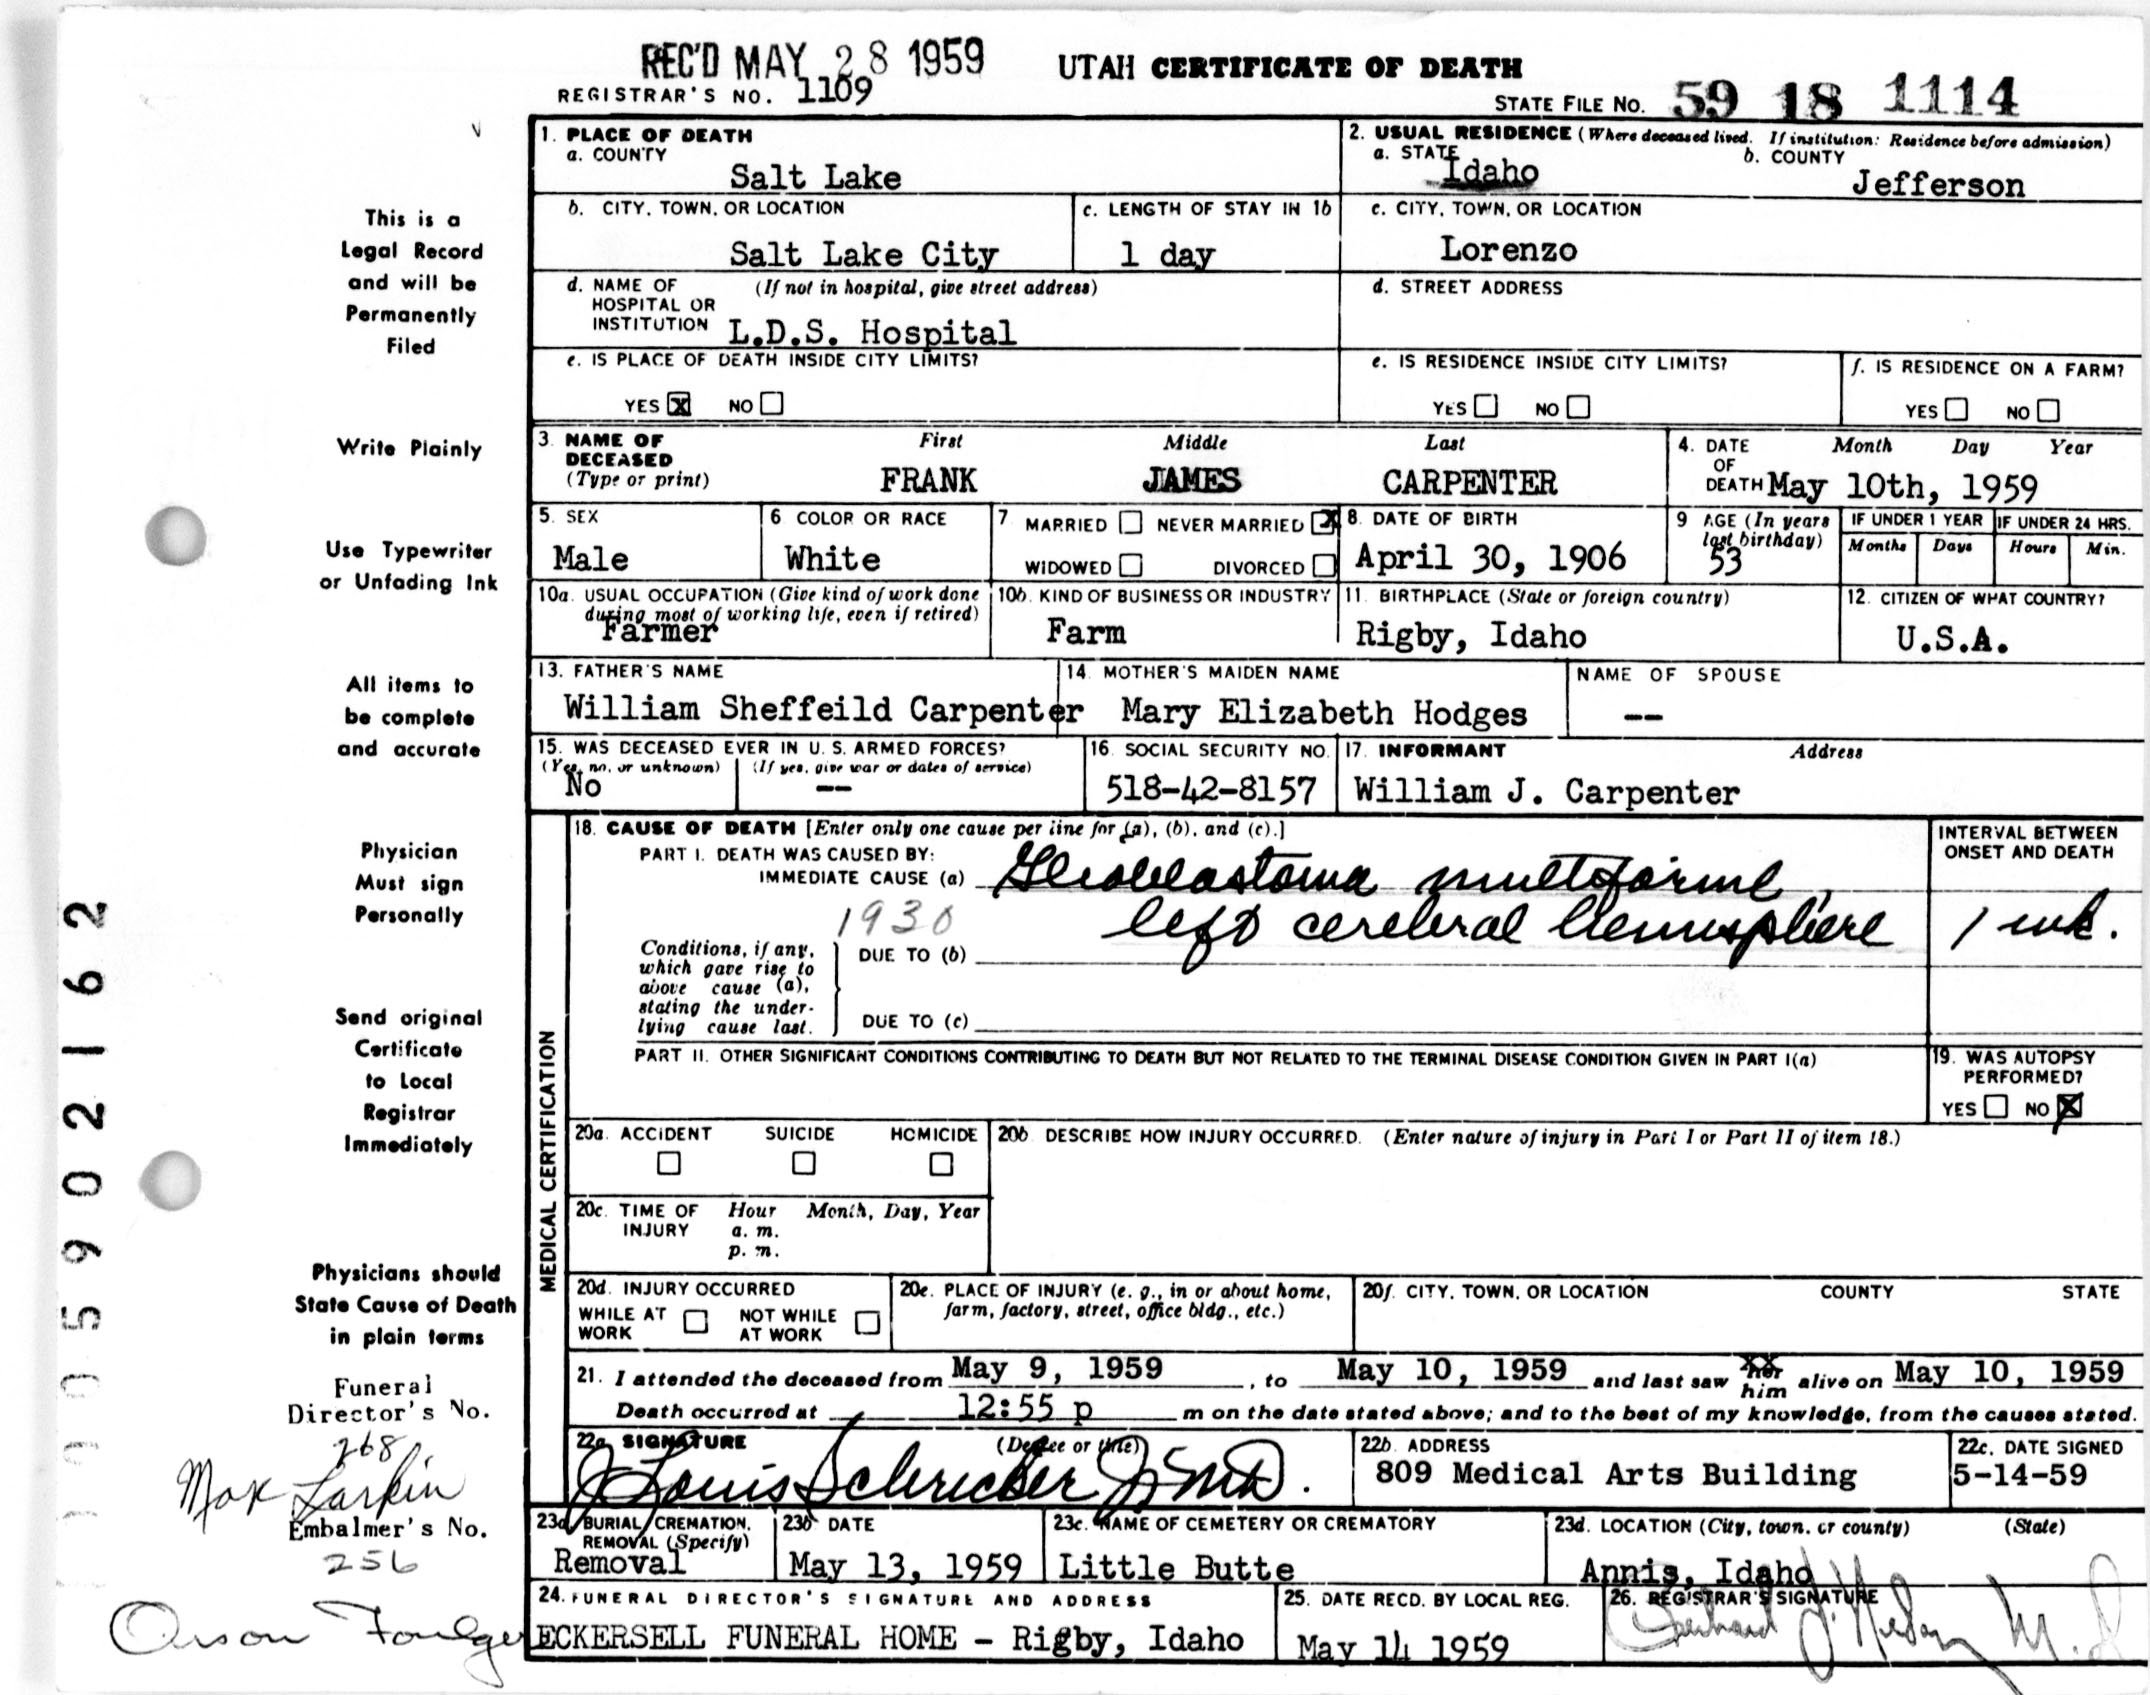 REC'D MAY 28 1959
UTAH CERTIFICATE OF DEATH
REGISTRAR'S NO. 1109
STATE FILE NO. 59 18 1114
This is a
Legal Record
and will be
Permanently
Filed
Write Plainly
Use Typewriter
or Unfading Ink
All items to
be complete
and accurate
Physician
Must sign
Personally
Send original
Certificate
to Local
Registrar
Immediately
Physicians should
State Cause of Death
in plain terms
Funeral
Director's No.
268
Max Larkin
Embalmer's No.
256
Orson Foulger
0005902162
1. PLACE OF DEATH
a. COUNTY
Salt Lake
2. USUAL RESIDENCE (Where deceased lived. If institution: Residence before admission)
a. STATE
Idaho
b. COUNTY
Jefferson
b. CITY, TOWN, OR LOCATION
Salt Lake City
c. LENGTH OF STAY IN 1b
1 day
c. CITY, TOWN, OR LOCATION
Lorenzo
d. NAME OF (If not in hospital, give street address)
HOSPITAL OR
INSTITUTION L.D.S. Hospital
d. STREET ADDRESS
e. IS PLACE OF DEATH INSIDE CITY LIMITS?
YES X NO
e. IS RESIDENCE INSIDE CITY LIMITS?
YES NO
f. IS RESIDENCE ON A FARM?
YES NO
3. NAME OF
DECEASED
(Type or print)
First Middle Last
FRANK JAMES CARPENTER
4. DATE Month Day Year
OF
DEATH May 10th, 1959
5. SEX
Male
6 COLOR OR RACE
White
7 MARRIED NEVER MARRIED X
WIDOWED DIVORCED
8. DATE OF BIRTH
April 30, 1906
9 AGE (In years
last birthday)
53
IF UNDER 1 YEAR
Months Days
IF UNDER 24 HRS.
Hours Min.
10a. USUAL OCCUPATION (Give kind of work done
during most of working life, even if retired)
Farmer
10b. KIND OF BUSINESS OR INDUSTRY
Farm
11. BIRTHPLACE (State or foreign country)
Rigby, Idaho
12. CITIZEN OF WHAT COUNTRY?
U.S.A.
13. FATHER'S NAME
William Sheffeild Carpenter
14. MOTHER'S MAIDEN NAME
Mary Elizabeth Hodges
NAME OF SPOUSE
--
15. WAS DECEASED EVER IN U. S. ARMED FORCES?
(Yes, no, or unknown) (If yes, give war or dates of service)
No --
16. SOCIAL SECURITY NO.
518-42-8157
17. INFORMANT Address
William J. Carpenter
MEDICAL CERTIFICATION
18. CAUSE OF DEATH [Enter only one cause per line for (a), (b), and (c).]
PART I. DEATH WAS CAUSED BY:
IMMEDIATE CAUSE (a) Glioblastoma multiforme,
1930 left cerebral hemisphere
INTERVAL BETWEEN
ONSET AND DEATH
1 wk.
Conditions, if any,
which gave rise to
above cause (a),
stating the under-
lying cause last.
DUE TO (b)
DUE TO (c)
PART II. OTHER SIGNIFICANT CONDITIONS CONTRIBUTING TO DEATH BUT NOT RELATED TO THE TERMINAL DISEASE CONDITION GIVEN IN PART I(a)
19. WAS AUTOPSY
PERFORMED?
YES NO X
20a. ACCIDENT SUICIDE HOMICIDE
20b. DESCRIBE HOW INJURY OCCURRED. (Enter nature of injury in Part I or Part II of item 18.)
20c. TIME OF Hour Month, Day, Year
INJURY a. m.
p. m.
20d. INJURY OCCURRED
WHILE AT NOT WHILE
WORK AT WORK
20e. PLACE OF INJURY (e. g., in or about home,
farm, factory, street, office bldg., etc.)
20f. CITY, TOWN, OR LOCATION COUNTY STATE
21. I attended the deceased from May 9, 1959, to May 10, 1959 and last saw her him alive on May 10, 1959
Death occurred at 12:55 p m on the date stated above; and to the best of my knowledge, from the causes stated.
22a. SIGNATURE (Degree or title)
J Louis Schricker Jr MD.
22b. ADDRESS
809 Medical Arts Building
22c. DATE SIGNED
5-14-59
23a. BURIAL, CREMATION,
REMOVAL (Specify)
Removal
23b DATE
May 13, 1959
23c. NAME OF CEMETERY OR CREMATORY
Little Butte
23d. LOCATION (City, town, or county) (State)
Annis, Idaho
24. FUNERAL DIRECTOR'S SIGNATURE AND ADDRESS
ECKERSELL FUNERAL HOME - Rigby, Idaho
25. DATE RECD. BY LOCAL REG.
May 14 1959
26. REGISTRAR'S SIGNATURE